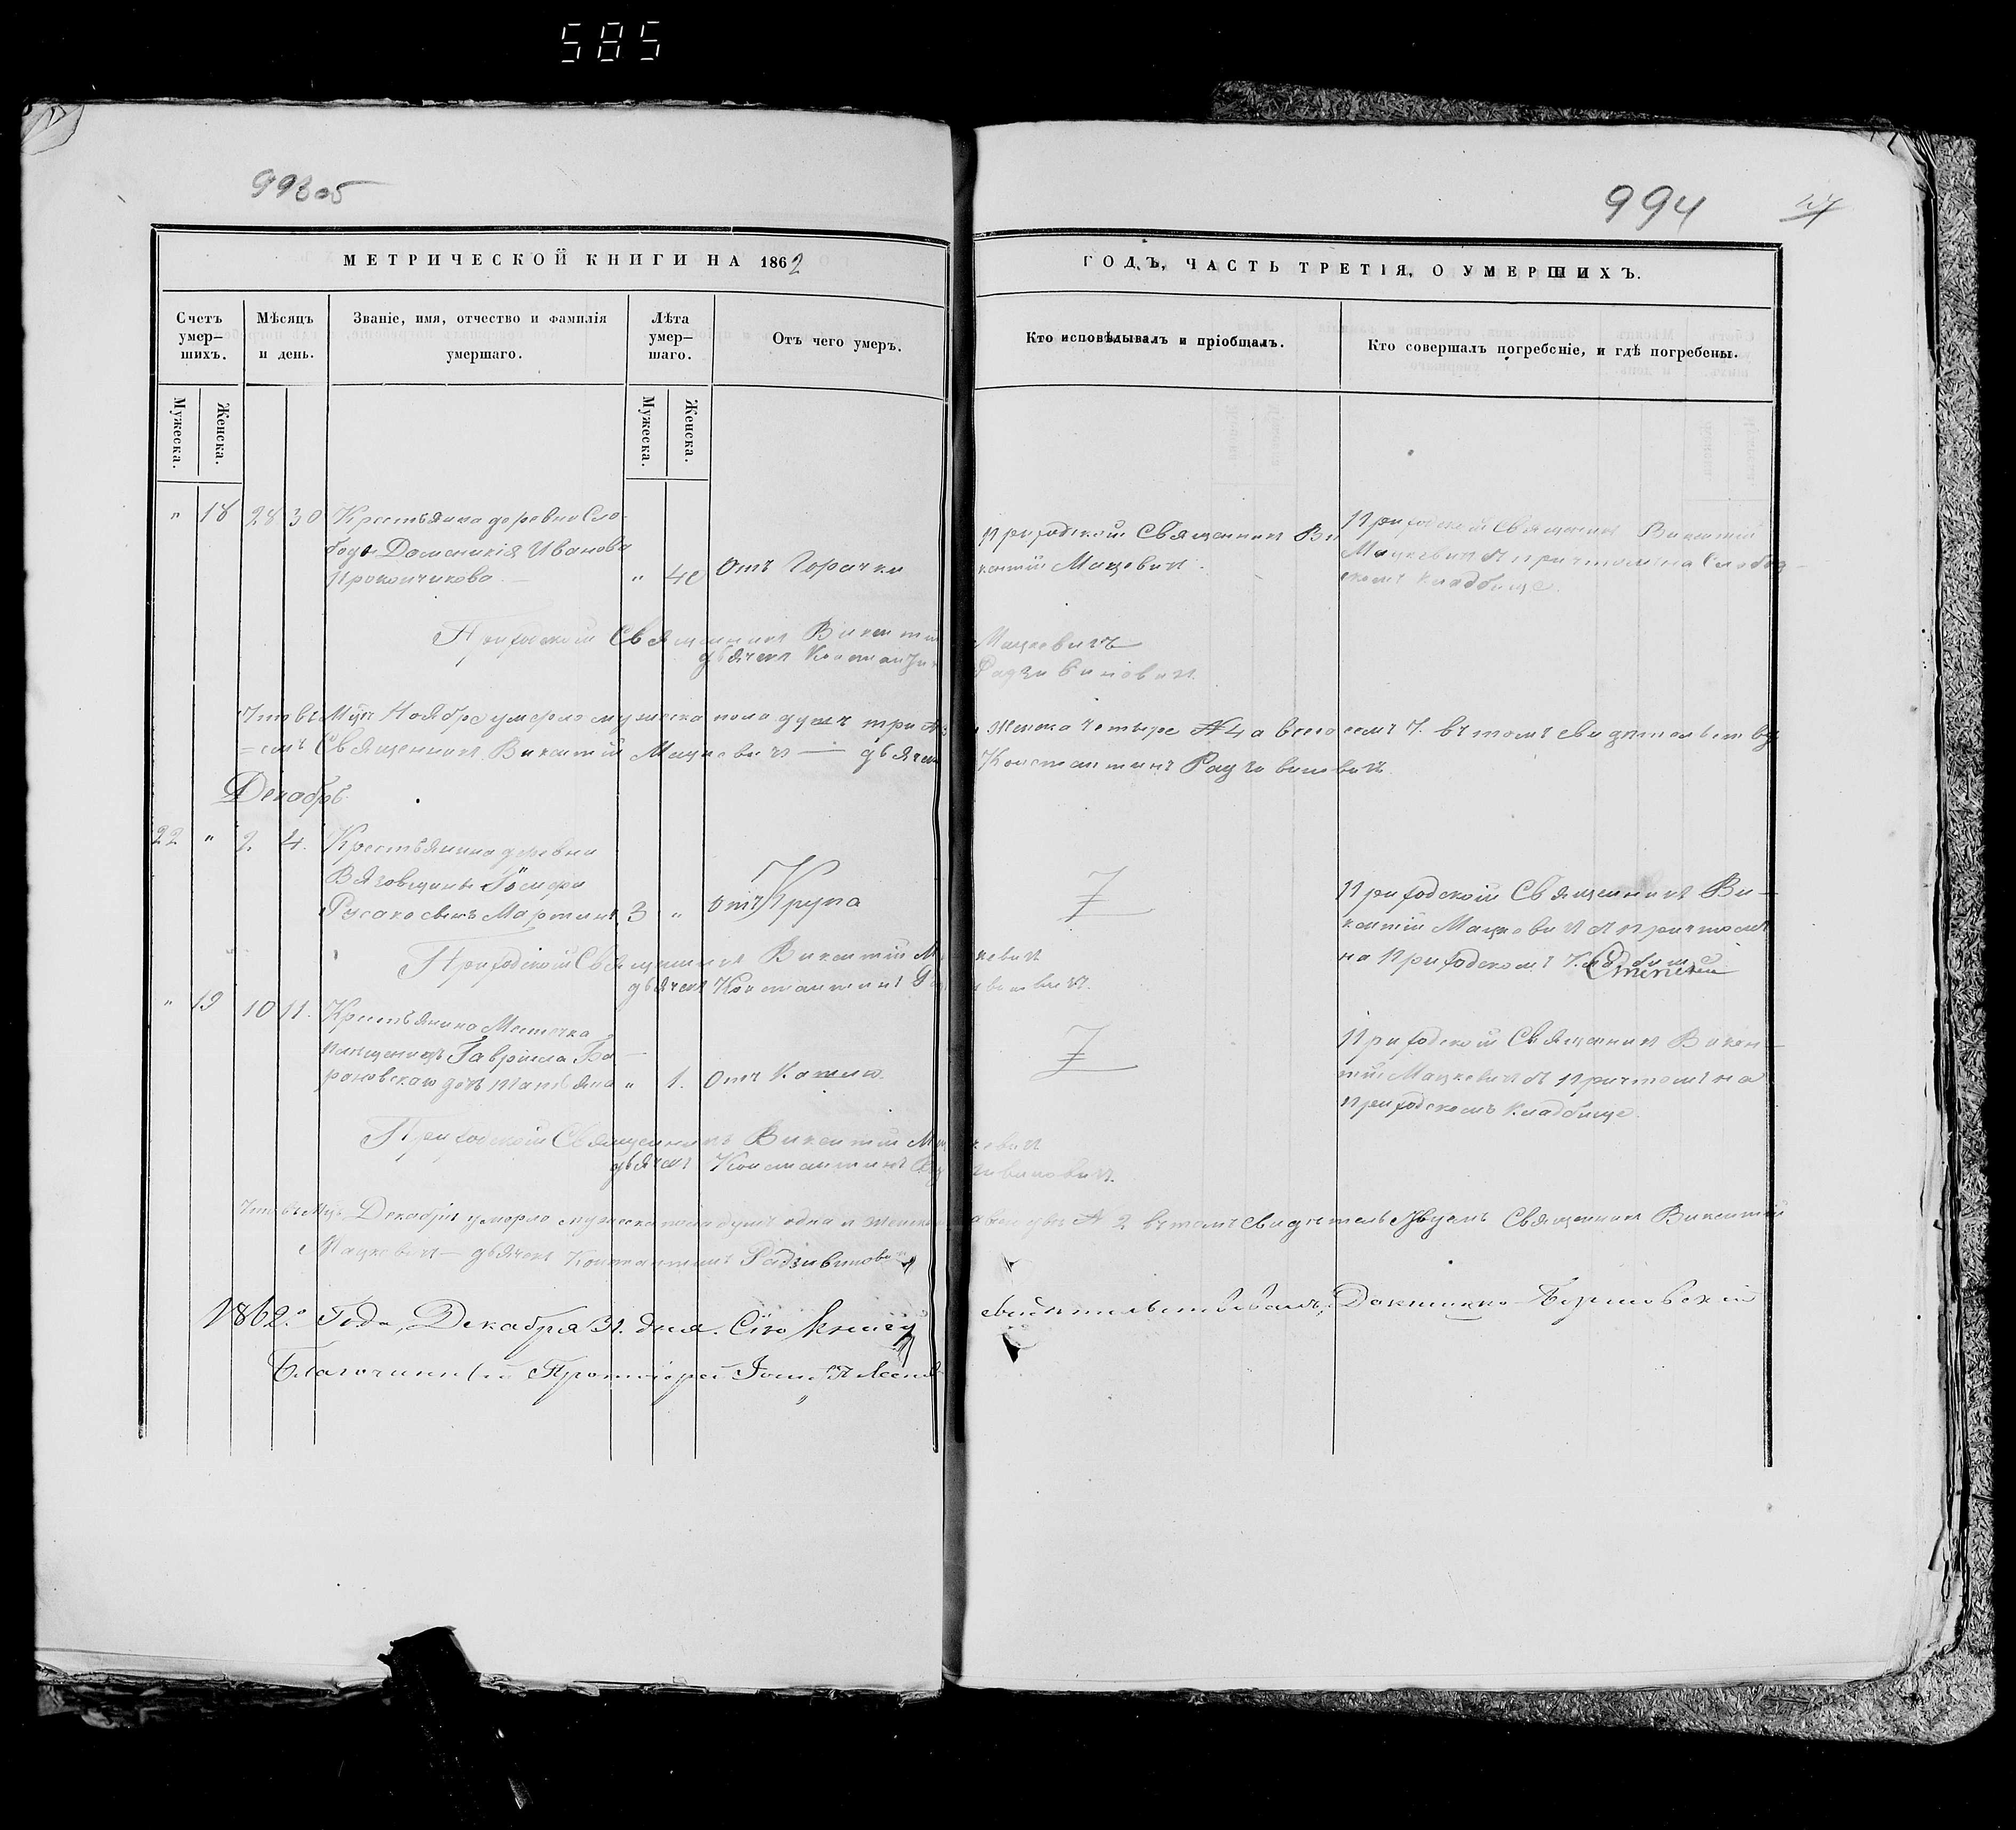 585
993 об
994
47
МЕТРИЧЕСКОЙ КНИГИ НА 1862
ГОДЪ, ЧАСТЬ ТРЕТІЯ, О УМЕРШИХЪ.
Счетъ умер-
шихъ.
Мѣсяцъ
и день.
Званіе, имя, отчество и фамилія
умершаго.
Лѣта
умер-
шаго.
Отъ чего умеръ.
Кто исповѣдывалъ и пріобщалъ.
Кто совершалъ погребеніе, и гдѣ погребены.
Мужеска.
Женска.
Мужеска.
Женска.
" 18 28 30 Крестьянка деревни Сло-
боды Домникія Иванова
" 40 Отъ Горячки
Приходскій Священникъ Ви
кентій Мацкевичъ.
Приходскій Священникъ Викентій
Мацкевичъ съ причтомъ на Слобод-
скомъ кладбище.
Приходскій Священникъ Викентій Мацкевичъ
дьячекъ Константинъ Радзивиновичъ
Что въ Мцѣ Ноябре умерло мужеска пола душъ три женска четыре № 4 а всего семъ 7. въ томъ свидѣтельству
=емъ Священникъ Викентій Мацкевичъ — дьячекъ Константинъ Радзивиновичъ.
Декабрь
22 " 2. 4. Крестьянина деревни
Русако сынъ Мартинъ 3 " отъ Крупа
Приходскій Священникъ Ви-
кентій Мацкевичъ съ причтомъ
на Приходскомъ Кладбище
Приходскій Священникъ Викентій Мацкевичъ
дьячекъ Константинъ Радзивиновичъ.
" 19 10 11. Крестьянина Местечка
Гавріила Ба-
рановскаго дочь Татьяна " 1. Отъ Кашлю.
Приходскій Священникъ Викен-
тій Мацкевичъ съ Причтомъ на
приходскомъ кладбище.
Приходскій Священникъ Викентій Мацкевичъ
дьячекъ Константинъ Радзивиновичъ.
Что въ Мцѣ Декабрѣ умерло мужеска пола душъ одна и женска № 2 въ томъ свидѣтельствуемъ Священникъ Викентій
Мацкевичъ — дьячекъ Константинъ Радзивиновичъ
1862го Года, Декабря 31. дня. Сію книгу свидѣтельствовалъ, Докшицко-Борисовскій
Благочинный Протоіерей